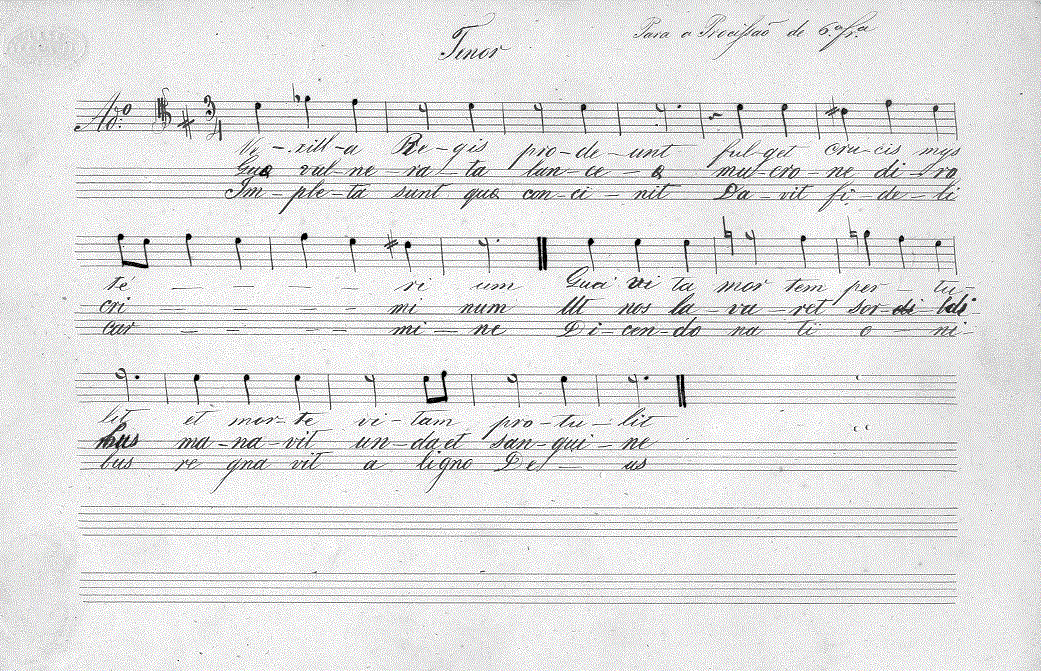 Tenor
Para a Procissão de 6.ª fr.ª
And.º 3/4
Ve-xill-a Re-gis pro-de-unt ful-get cru-cis mys
Qua vul-ne-ra-ta lan-ce-a mu-cro-ne di-ro
Im-ple-ta sunt quæ con-ci-nit Da-vit fi-de-li
te - - - - ri um Quai vi ta mor tem per-tu-
cri - - - - mi num Ut nos la-va-ret sor-di
car - - - - mi-ne Di-cen-do na ti o-ni-
lit et mor-te vi-tam pro-tu-lit
bus ma-na-vit un-da et san-qui-ne
bus re gna vit a ligno De-us